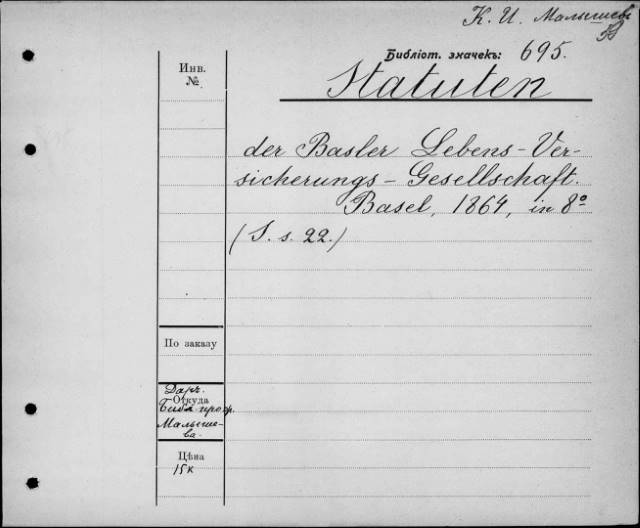 К. И. Малышевъ
Библіот. значекъ: 695.
Инв.
№
Statuten
der Basler Lebens-Ver-
sicherungs-Gesellschaft.
Basel, 1864, in 8º
(S. s. 22.)
По заказу
Даръ
Откуда
Библ. проф.
Малыше-
ва.
Цѣна
15к